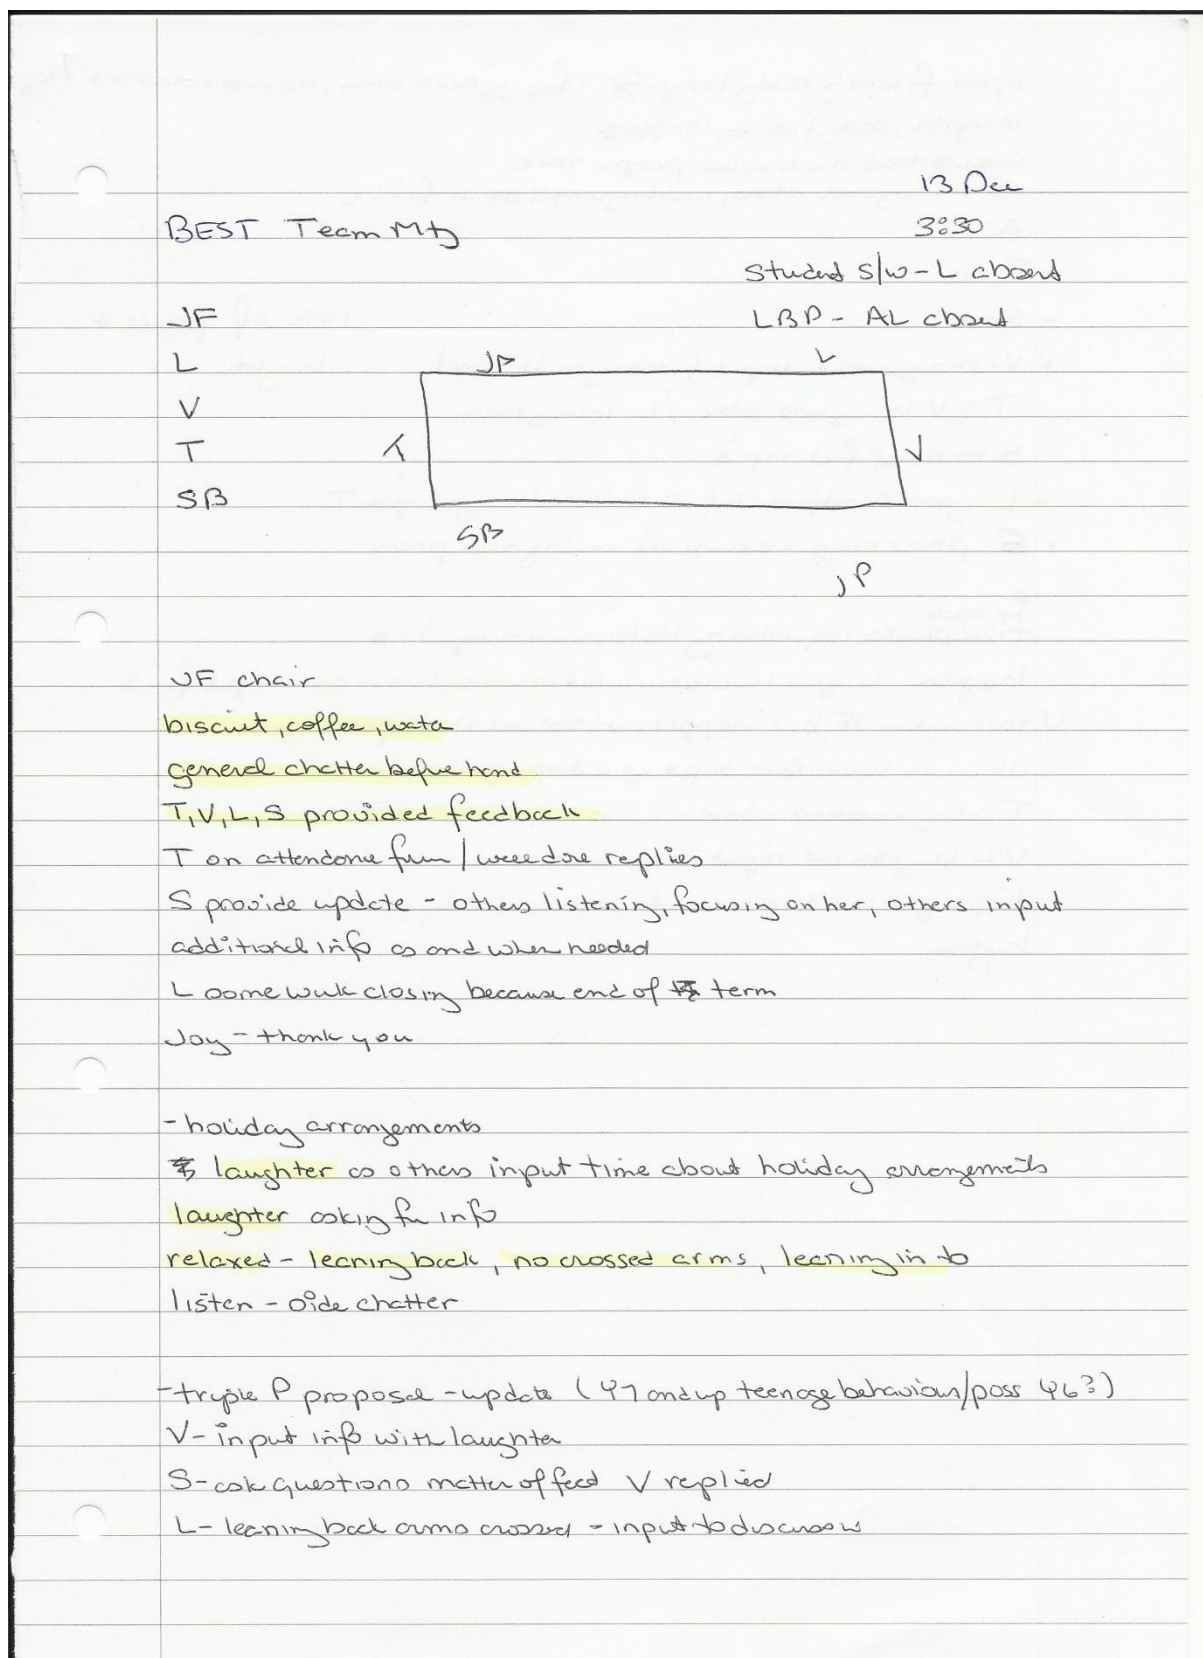 13 Dec
BEST Team Mtg
3:30
Student s/w - L absent
JF
LBP - AL absent
L
JP
L
V
T
T
V
SB
SB
JP
JF chair
biscuit, coffee, water
general chatter before hand
T, V, L, S provided feedback
T on attendance from / replies
S provide update - others listening, focusing on her, others input
additional info as and when needed
L some work closing because end of term
Joy - thank you
- holiday arrangements
laughter as others input time about holiday arrangements
laughter asking for info
relaxed - leaning back, no crossed arms, leaning in to
listen - side chatter
- tryple P proposal - update (Y7 and up teenage behaviour/poss Y6?)
V - input info with laughter
S - ask questions matter of fact V replied
L - leaning back arms crossed - input to discussion